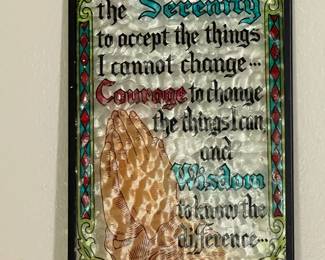 the Serenity
to accept the things
I cannot change...
Courage to change
the things I can,
and
Wisdom
to know the
difference...